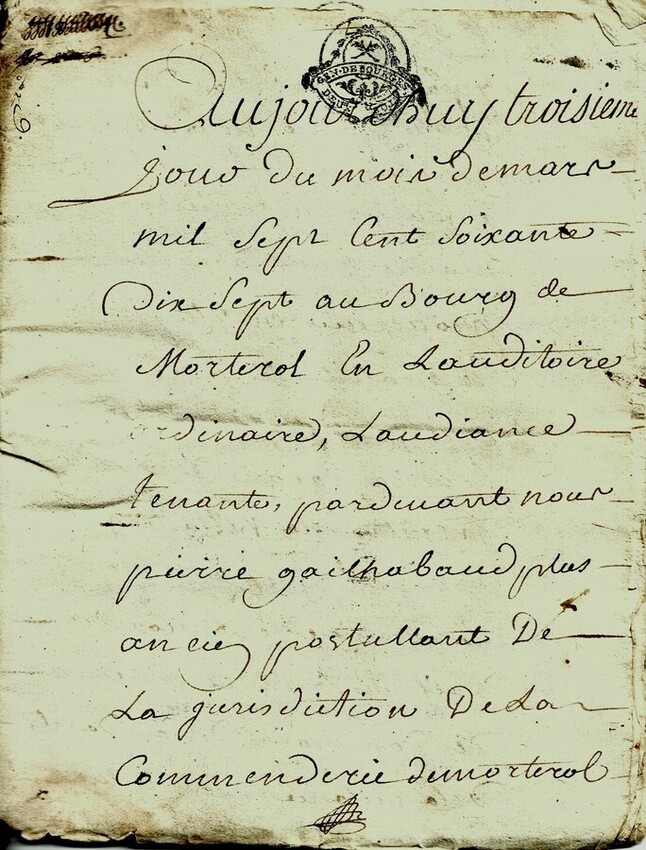 GEN. DE
DEUX
Aujourdhuy troisieme
Jour du mois de mars
mil Sept Cent Soixante
Dix Sept au Bourg de
Morterol En Lauditoire
ordinaire, Laudiance
tenante, pardevant nous
pierre gailhabaud plus
ancien postullant De
La jurisdiction De La
Commenderie de morterol